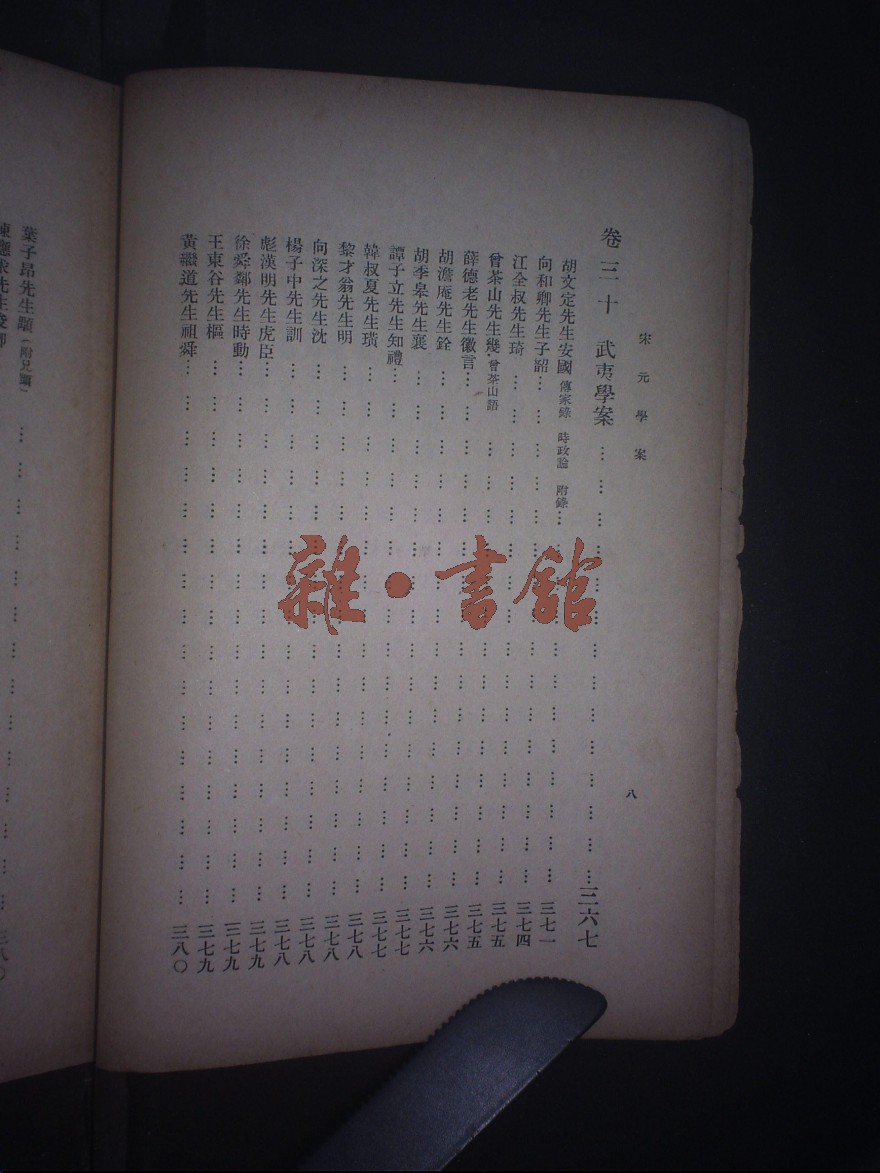 宋元學案 八
卷三十 武夷學案……三六七
胡文定先生安國 傳家錄 時政論 附錄……三七一
向和卿先生子韶……三七四
江全叔先生琦……三七五
曾茶山先生幾 曾茶山語……三七五
薛德老先生徽言……三七六
胡澹庵先生銓……三七六
胡季皋先生襄……三七七
譚子立先生知禮……三七七
韓叔夏先生璜……三七八
黎才翁先生明……三七八
向深之先生沈……三七八
楊子中先生訓……三七八
彪漢明先生虎臣……三七九
徐舜鄰先生時動……三七九
王東谷先生樞……三七九
黃繼道先生祖舜……三八〇
葉子昂先生顒(附兄顗)……三八〇
雜·書館